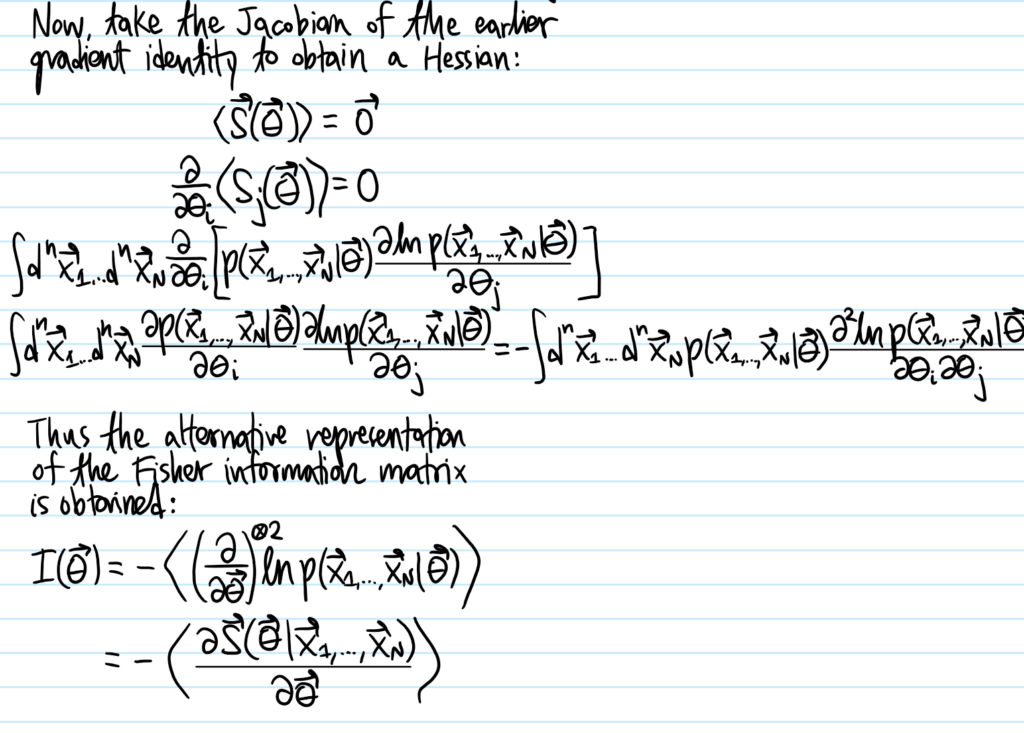 Now, take the Jacobian of the earlier
gradient identity to obtain a Hessian:
⟨S⃗(θ⃗)⟩ = 0⃗
∂/∂θᵢ ⟨Sⱼ(θ⃗)⟩ = 0
∫dⁿx⃗₁...dⁿx⃗_N ∂/∂θᵢ [p(x⃗₁,...,x⃗_N|θ⃗) ∂ln p(x⃗₁,...,x⃗_N|θ⃗)/∂θⱼ]
∫dⁿx⃗₁...dⁿx⃗_N ∂p(x⃗₁,...,x⃗_N|θ⃗)/∂θᵢ ∂ln p(x⃗₁,...,x⃗_N|θ⃗)/∂θⱼ = -∫dⁿx⃗₁...dⁿx⃗_N p(x⃗₁,...,x⃗_N|θ⃗) ∂²ln p(x⃗₁,...,x⃗_N|θ⃗/∂θᵢ∂θⱼ
Thus the alternative representation
of the Fisher information matrix
is obtained:
I(θ⃗) = -⟨(∂/∂θ⃗)^⊗2 ln p(x⃗₁,...,x⃗_N|θ⃗)⟩
= -⟨∂S⃗(θ⃗|x⃗₁,...,x⃗_N)/∂θ⃗⟩